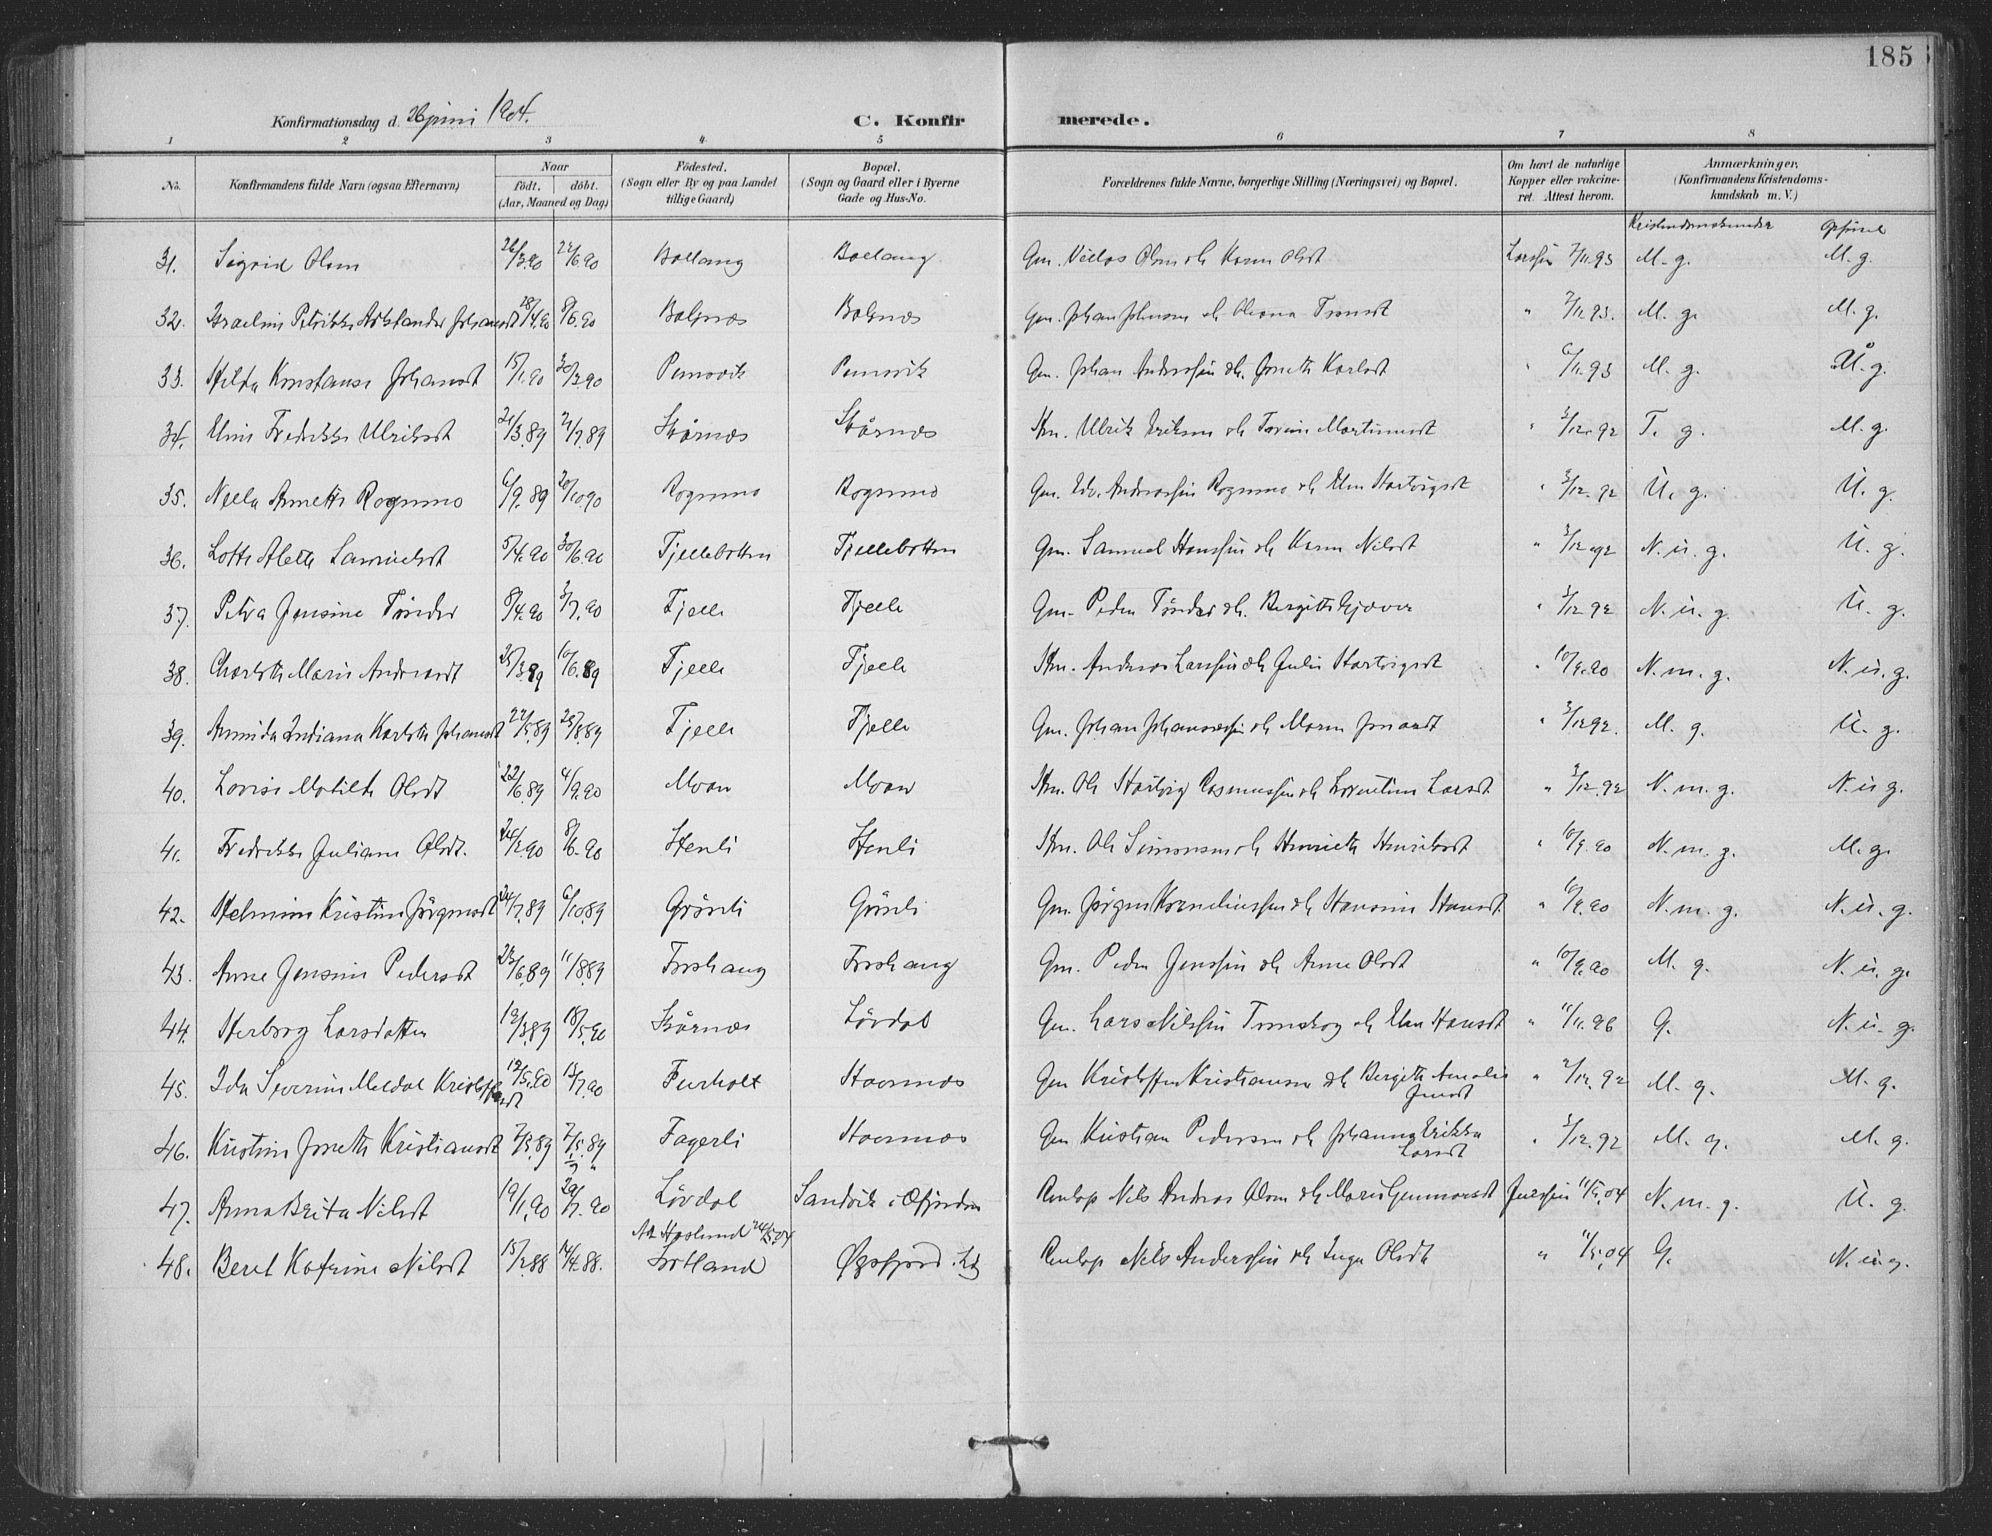 185
Konfirmationsdag d. 26 juni 1904.
C. Konfirmerede.
1 2 3 4. 5 6 7 8
No. Konfirmandens fulde Navn (ogsaa Efternavn) Naar født. døbt. (Aar, Maaned og Dag) Fødested. (Sogn eller By og paa Landet tillige Gaard) Bopæl. (Sogn og Gaard eller i Byerne Gade og Hus-No. Forældrenes fulde Navne, borgerlige Stilling (Næringsvei) og Bopæl. Om havt de naturlige Kopper eller vakcineret. Attest herom. Anmærkninger. (Konfirmandens Kristendomskundskab m. V.)
Kristendomskundsk Opførsel
31. Sigrid Olsen 26/3.90 22/6.90 Ballang Ballang Gm. Olsen & Karen Olsdt 7/11.93 M. g. M. g.
32. Petrikke Johansdt 18/4.90 8/6.90 Balsnes Balsnes Gm. Johan Johnsen & " 7/11.93. M. g. M. g.
33. Hilda Konstanse Johansdt 15/1.90 30/3.90 Gm. Johan Anderssen & Jonette Karlsdt " 6/11.93 M. g. M. g.
34. Fredrikke Ulriksdt 21/3.89 21/7.89 Skårnes Skårnes Km. Ulrik Eriksen & Martinusdt " 3/12.92 T. g. M. g.
35. Nella Annette Rognmo 6/9.89 20/10.90 Rognmo Rognmo Gm. Edv. Andreassen Rognmo & Elen Hartvigsdt " 3/12.92 U. g. U. g.
36. Lotte Aletta Samuelsdt 5/4.90 30/6.90 Fjellebotten Fjellebotten Gm. Samuel Hanssen & Karen Nilsdt " 3/12.92 N. u. g. U. g.
37. Petra Jensine Tønder 8/4.90 3/7.90 Fjelle Fjelle Gm. Peder Tønder & Bergitte Gjæver " 3/12.92 N. u. g. U. g.
38. Charlotte Marie Andreasdt 25/3.89 10/6.89 Fjelle Fjelle Km. Andreas Larssen & Julie Hartvigsdt " 10/9.90 N. m. g. N. u. g.
39. Arnida Indiana Karlotte Johansdt 22/5.89 25/8.89 Fjelle Fjelle Gm. Johan Johannessen & Maren Jonasdt " 3/12.92. M. g. U. g.
40. Lovise Matilde Olsdt 22/6.89 4/9.90 Moan Moan Km. Ole Hartvig Rasmussen & Lorentine Larsdt " 3/12.92 N. m. g. N. u g.
41. Fredrikke Juliane Olsdt. 24/2.90 8/6.90 Stenli Stenli Km. Ole Simonsen & Henriette Henriksdt " 10/9.90 N. m. g. M. g.
42. Helmine Kristine Jørgensdt 24/7.89 6/10.89 Grønli Grønli Gm. Jørgen Korneliussen & Hansine Hansdt. " 10/9.90 N. m. g. N. u. g.
43. Anne Jensine Pedersdt 23/6.89 11/8.89 Forshaug Forshaug Gm. Peder Jenssen & Anne Olsdt " 10/9.90 M. g. N. u. g.
44. Herborg Larsdatter 19/3.89 18/5.90 Skårnes Løvdal Gm. Lars Nilssen & Elen Hansdt " 11/11.96 G. N. u. g.
45. Ida Severine Meldal Kristoffersdt 12/5.90 13/7.90 Furholt Stavnes Gm Kristoffer Kristiansen & Bergitte Amalie Jensdt " 2/12.92 M. g. M. g.
46. Kristine Jonette Kristiansdt 7/3.89 7/5.89 Fagerli Stavnes Gm Kristian Pedersen & Johanna Erikka Larsdt " 3/12.92 M. g. M. g.
47. Anna Brita Nilsdt 19/1.90 29/7.90 Løvdal Sandvik i Efjorden Renlap Nils Andreas Olsen & Marit Gunnarsdt 11/5.04 N. m. g. U. g.
48. Beret Katrine Nilsdt 15/2.88 14/4.88. Att. Haslund 24/5.04 Lødingen Renlap Nils Anderssen & Inga Olsdt " 11/5.04 G. N. u. g.